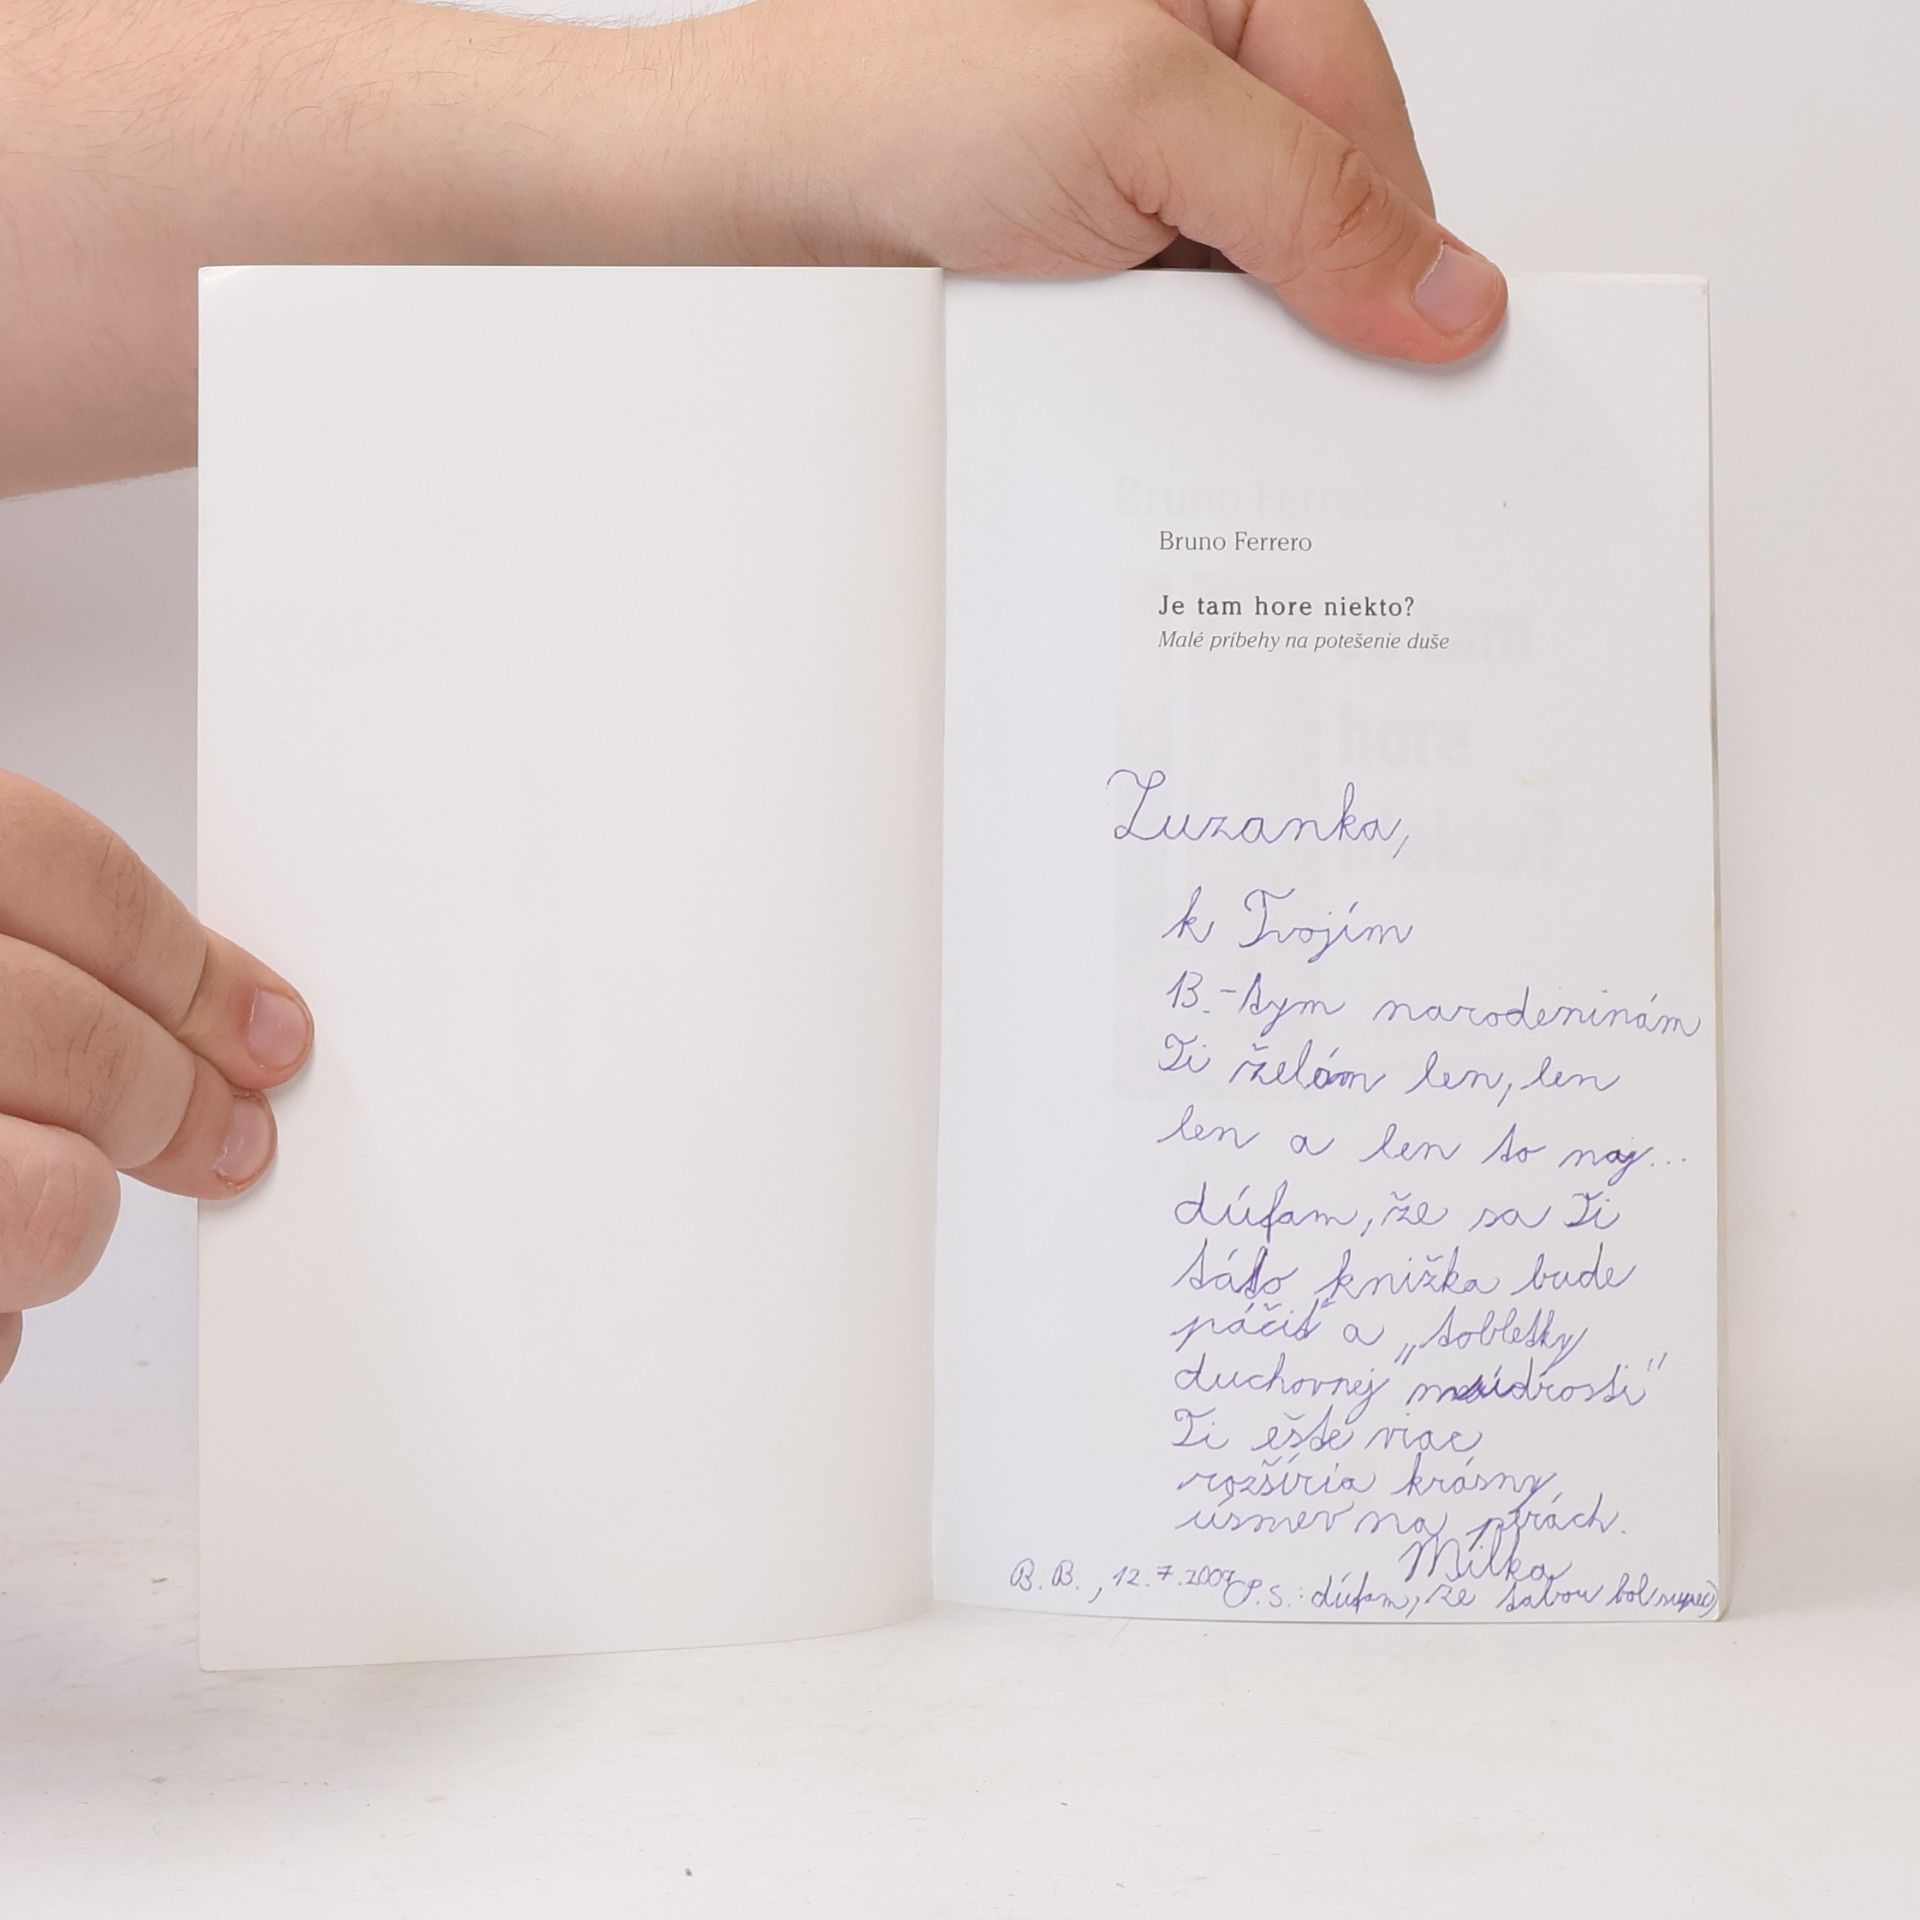 Bruno Ferrero
Je tam hore niekto?
Malé príbehy na potešenie duše
Zuzanka,
k Tvojím
13.-tym narodeninám
Ti želám len, len
len a len to naj...
dúfam, že sa Ti
táto knižka bude
páčiť a „tobletky
duchovnej múdrosti"
Ti ešte viac
rozšíria krásny
úsmev na perách.
Milka
B. B., 12.7.2007 P.S.: dúfam, že tabou bol super)